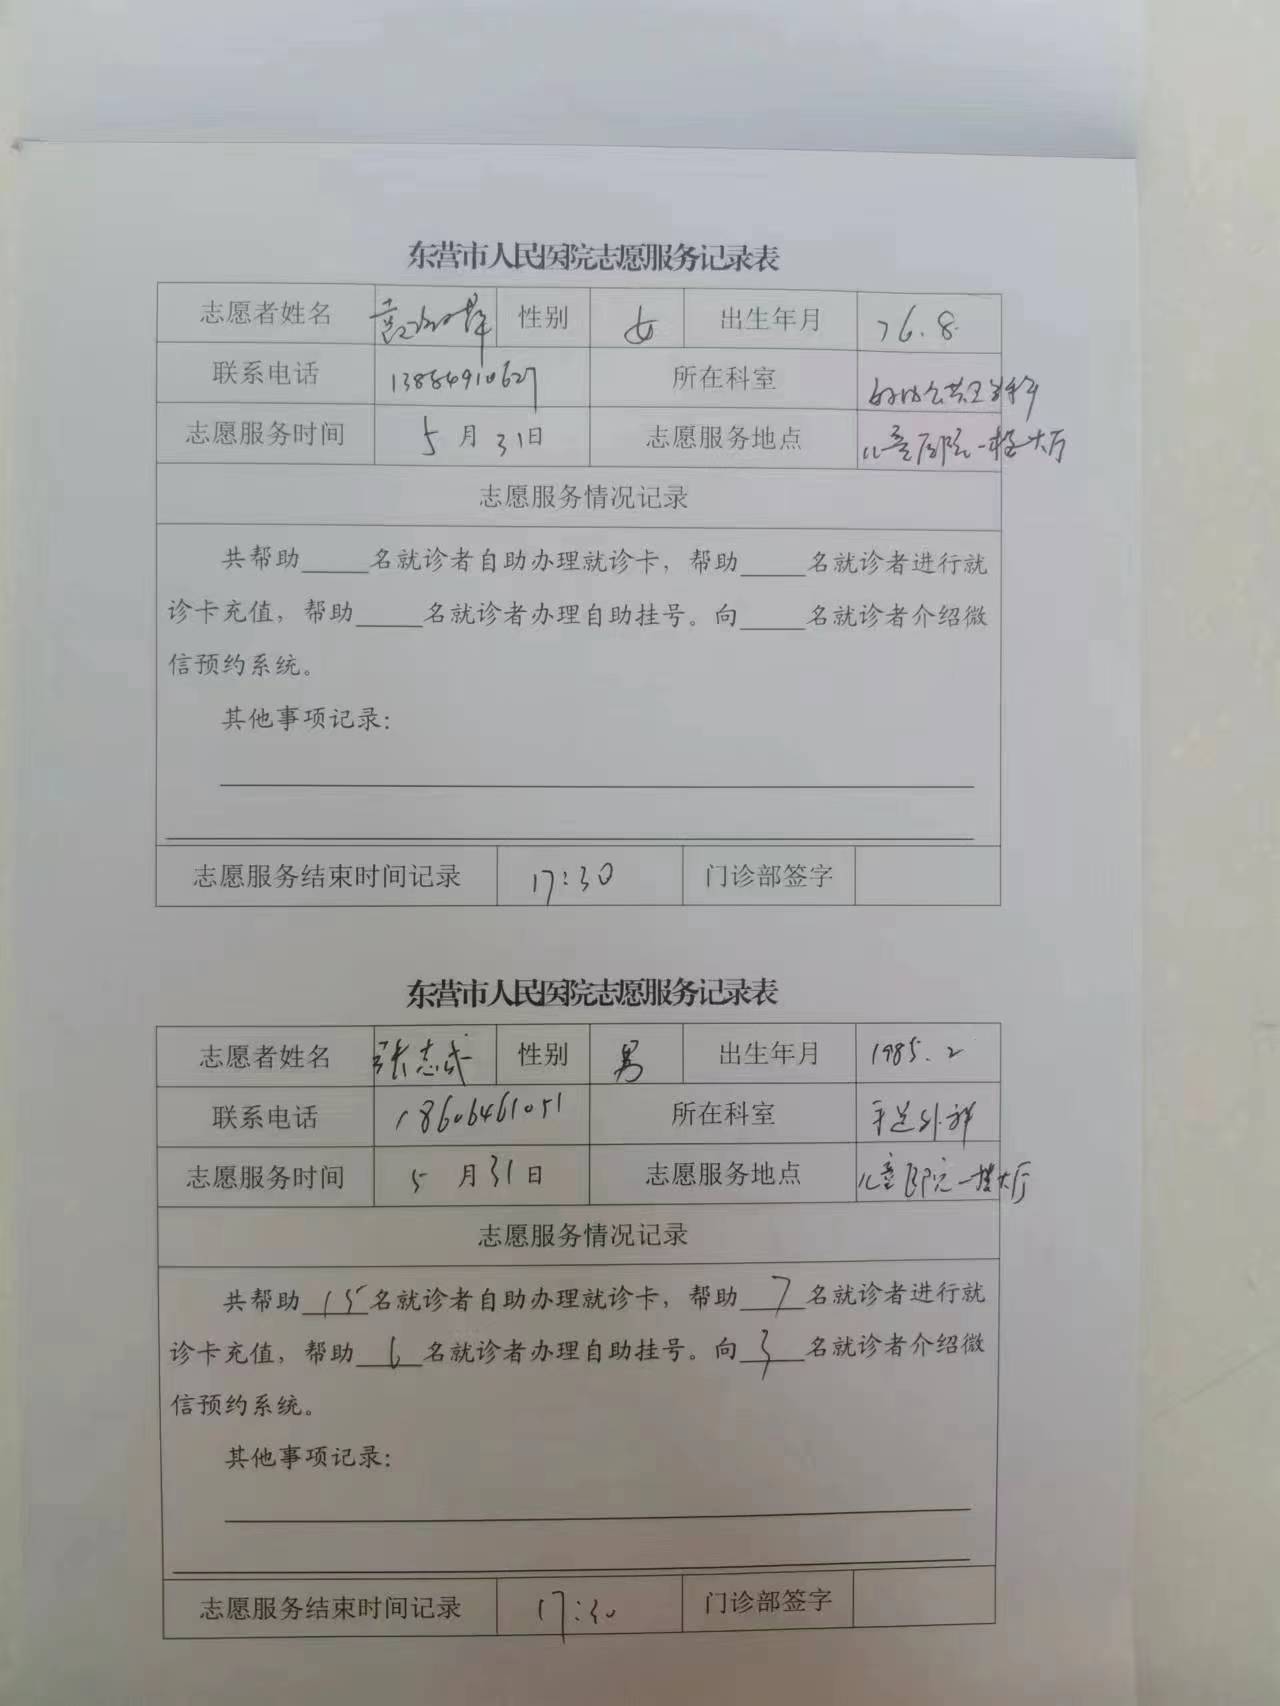 东营市人民医院志愿服务记录表
志愿者姓名 性别 女 出生年月 76.8
联系电话 13884910627 所在科室
志愿服务时间 5月31日 志愿服务地点 儿童医院一楼大厅
志愿服务情况记录
共帮助_____名就诊者自助办理就诊卡，帮助_____名就诊者进行就
诊卡充值，帮助_____名就诊者办理自助挂号。向_____名就诊者介绍微
信预约系统。
其他事项记录：
志愿服务结束时间记录 17:30 门诊部签字
东营市人民医院志愿服务记录表
志愿者姓名 张志武 性别 男 出生年月 1985.2
联系电话 18606461051 所在科室
志愿服务时间 5月31日 志愿服务地点 儿童医院一楼大厅
志愿服务情况记录
共帮助15名就诊者自助办理就诊卡，帮助7名就诊者进行就
诊卡充值，帮助6名就诊者办理自助挂号。向3名就诊者介绍微
信预约系统。
其他事项记录：
志愿服务结束时间记录 17:30 门诊部签字